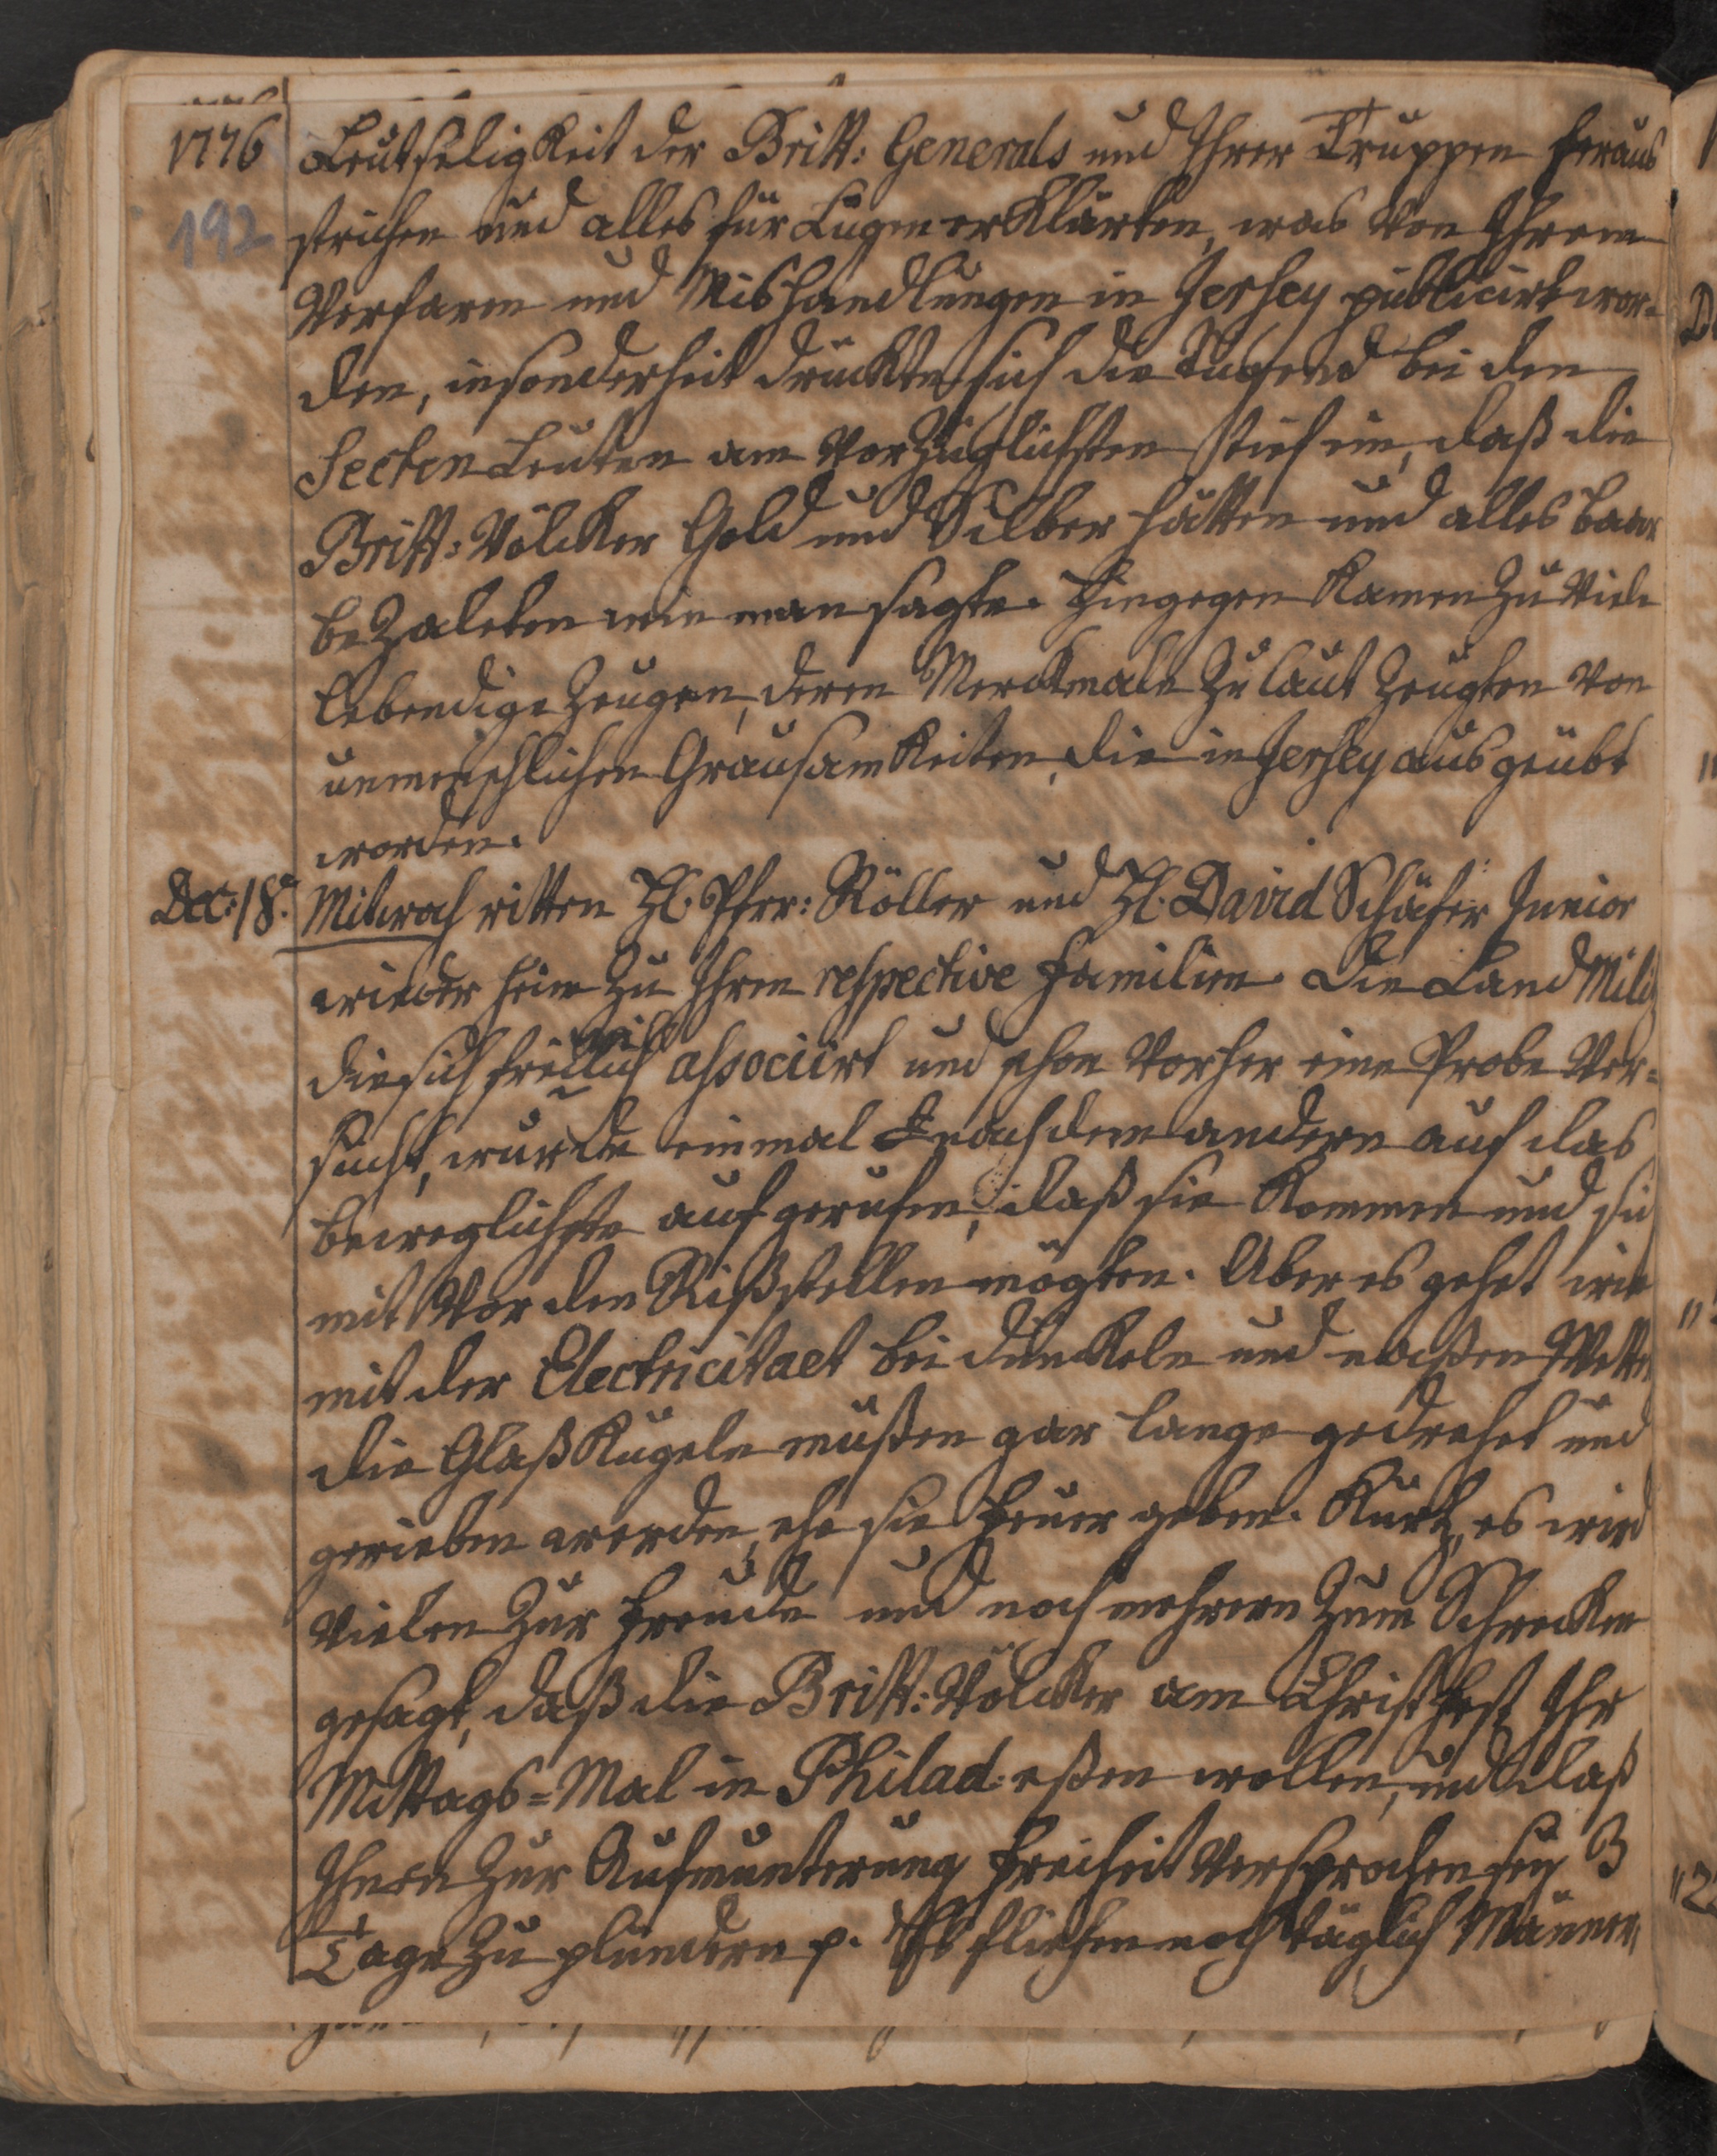 1776
192
Leutseligkeit der Britt: Generals und Ihrer Truppen heraus
strichen und alles für Lügen erklärten, was von Ihrem
Verfaren und Mishandlungen in Jersey publicirt wor-
den, insonderheit drückte sich die Tugend bei den
Secten Leuten am vorzüglichsten tief ein, daß die
Britt: Völcker Gold und Silber hätten und alles baar
bezaleten wie man sagte. Hingegen kamen zu viele
lebendige Zeugen, deren Merckmale zu laut zeugten von
unmenschlichen Grausamkeiten, die in Jersey ausgeübt
worden.
Dec: 18. Mitwoch ritten H. Pfrr: Röller und H. David Schäfer Junior
wieder heim zu Ihren respective Familien. Die Land Miliz
die sich freiwillich associirt und schon vorher eine Probe ver-
sucht, wurde einmal nach dem andern auf das
beweglichste aufgerufen, daß sie kommen und sich
mit vor den Riß stellen mögten. Aber es gehet wie
mit der Electricitaet bei dunckeln und naßen Wetter
die Glaß Kugeln müßen gar lange gedrehet und
gerieben werden, ehe sie Feuer geben. Kurtz, es wird
vielen zur Freude und noch mehrern zum Schrecken
gesagt, daß die Britt: Völcker am Christfest Ihr
Mittags-Mal in Philad: eßen wollen, und daß
Ihnen zur Aufmunterung Freiheit versprochen sey 3
Tage zu plündern p. Es fliehen noch täglich Männer,